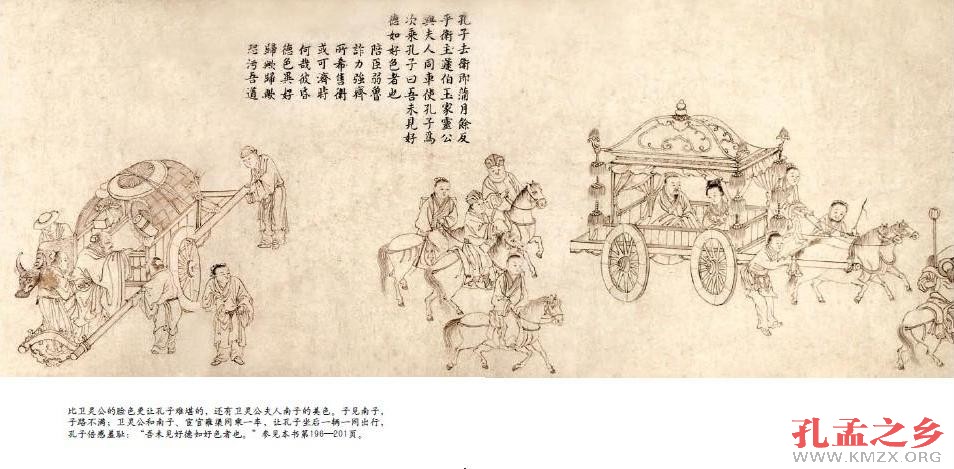 孔子去衛即蒲月餘反
乎衛主蘧伯玉家靈公
與夫人同車使孔子爲
次乘孔子曰吾未見好
德如好色者也
陪臣弱魯
詐力強齊
所希售衛
或可濟時
何哉彼昏
德色異好
歸歟歸歟
恐污吾道
比卫灵公的脸色更让孔子难堪的，还有卫灵公夫人南子的美色。子见南子，
子路不满；卫灵公和南子、宦官雍渠同乘一车，让孔子坐后一辆一同出行，
孔子倍感羞耻：“吾未见好德如好色者也。”参见本书第196—201页。
孔孟之乡
WWW.KMZX.ORG